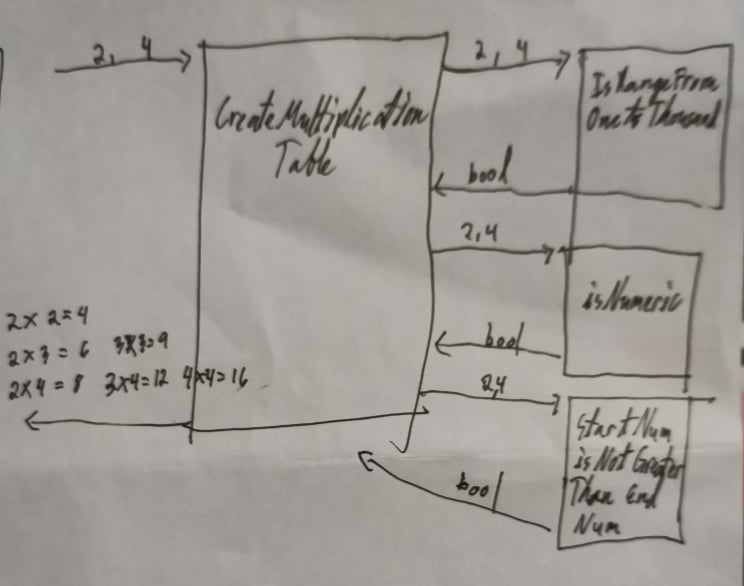 2, 4
CreateMultiplication
Table
2, 4
IsRangeFrom
One to Thousand
bool
2,4
isNumeric
bool
2,4
Start Num
is Not Greater
Than End
Num
bool
2 x 2 = 4
2 x 3 = 6 3x3=9
2 x 4 = 8 3x4=12 4x4=16